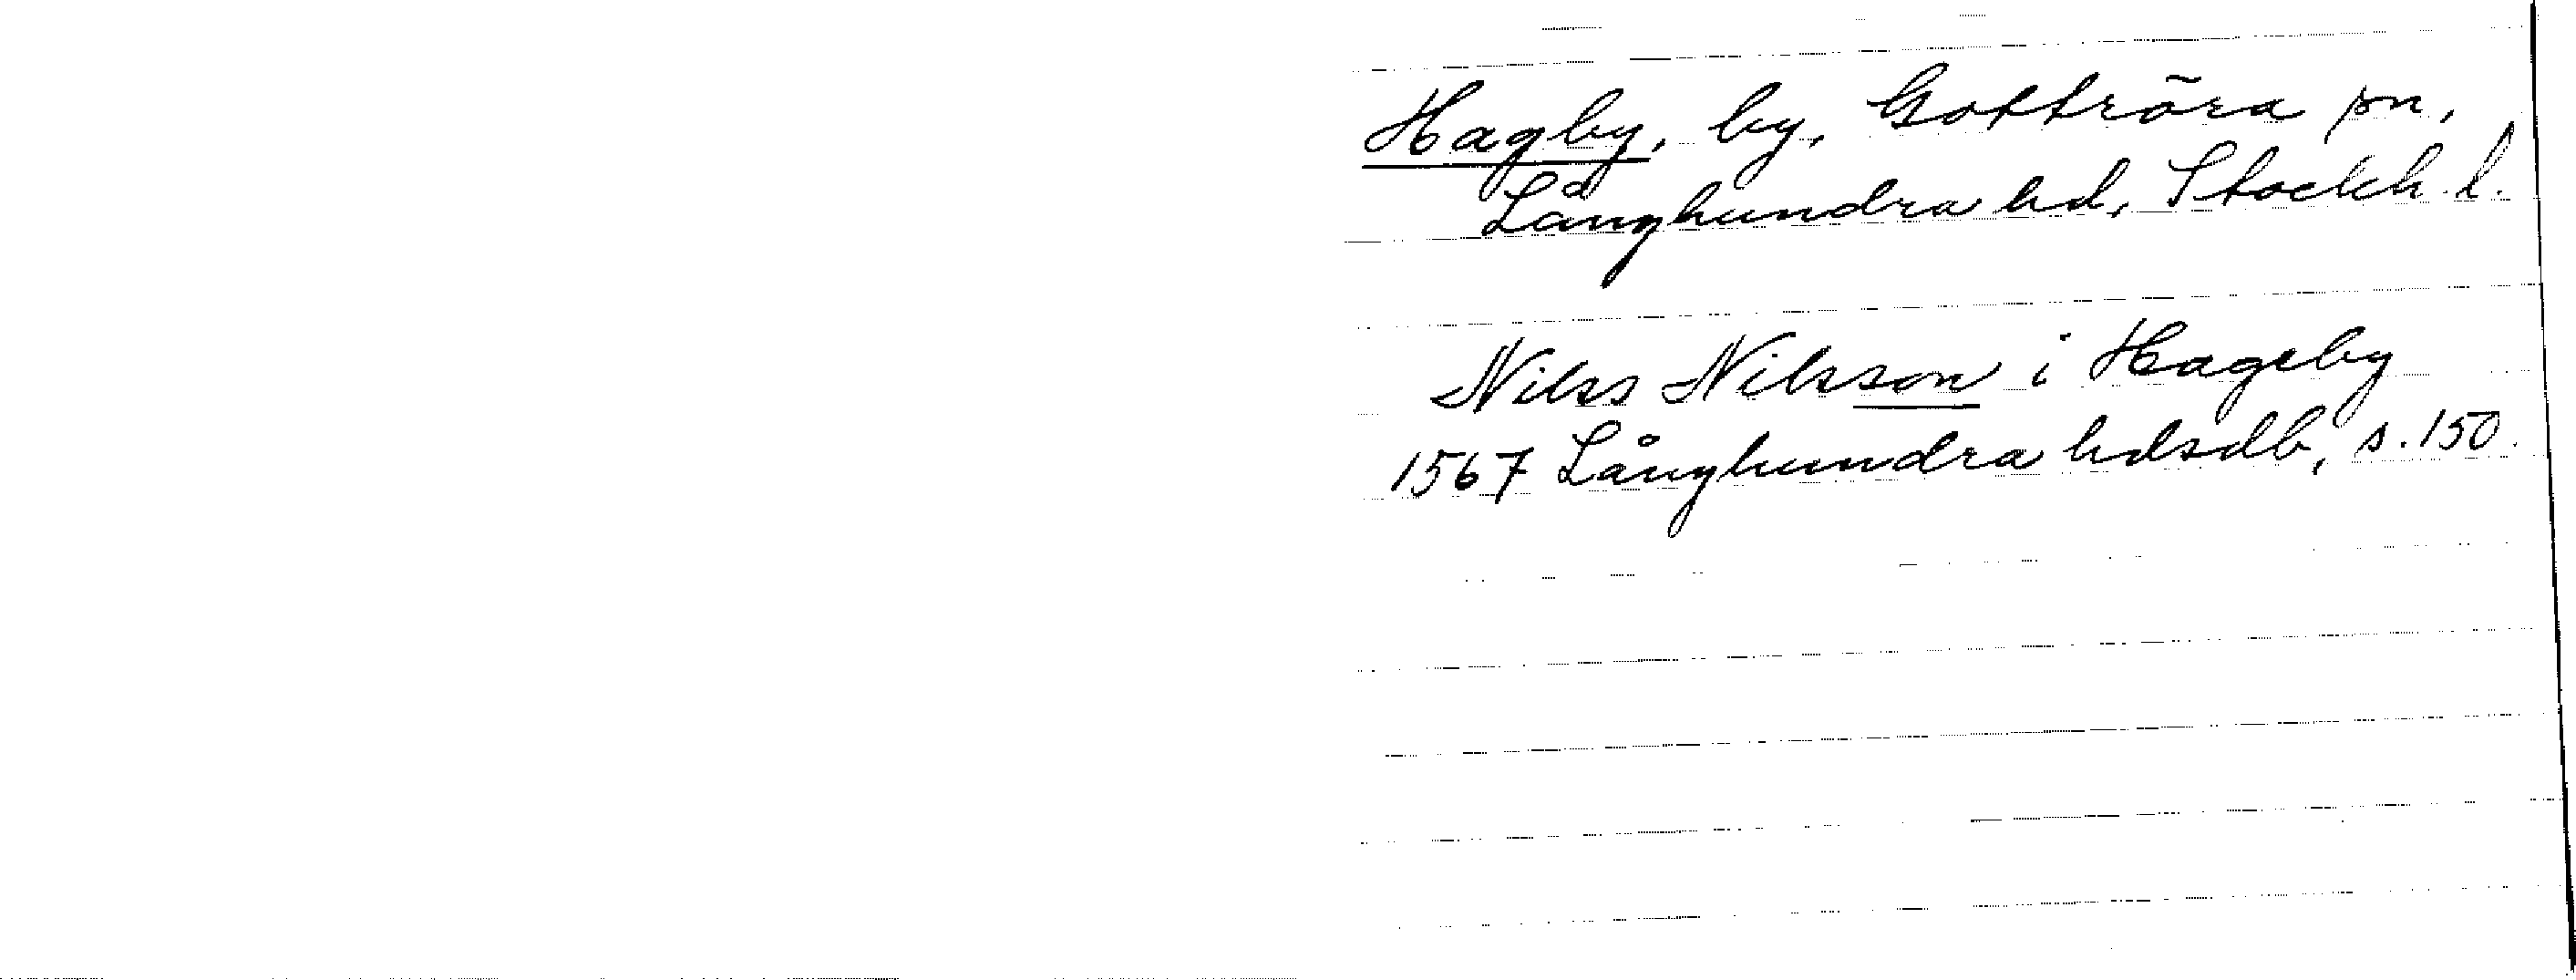 Hagby, by, Gottröra sn,
Långhundra hd, Stockh. l.
Nilss Nilsson i Hageby
1567 Långhundra hdsdb, s. 150.